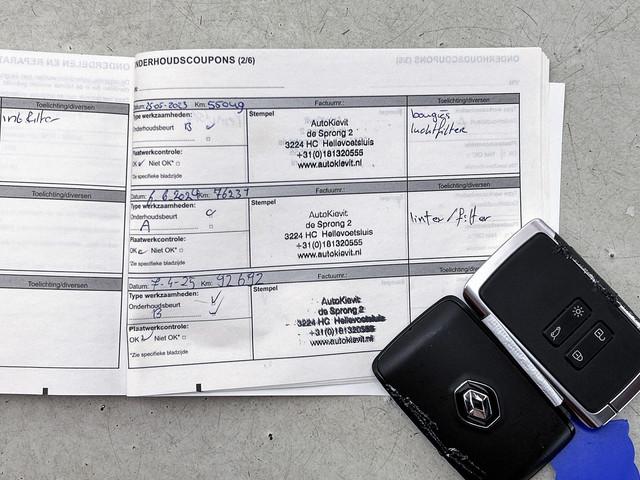 ONDERHOUDSCOUPONS (2/6)
Toelichting/diversen
Datum: 25-05-2023 Km: 55049
Factuurnr.:
Toelichting/diversen
Type werkzaamheden:
Onderhoudsbeurt B
Plaatwerkcontrole:
OK Niet OK*
*Zie specifieke bladzijde
Stempel
AutoKievit
de Sprong 2
3224 HC Hellevoetsluis
+31(0)181320555
www.autokievit.nl
bougies
luchtfilter
Toelichting/diversen
Datum: 6-6-2024 Km: 76237
Factuurnr.:
Toelichting/diversen
Type werkzaamheden:
Onderhoudsbeurt
A
Plaatwerkcontrole:
OK Niet OK*
*Zie specifieke bladzijde
Stempel
AutoKievit
de Sprong 2
3224 HC Hellevoetsluis
+31(0)181320555
www.autokievit.nl
Toelichting/diversen
Datum: 7-4-25 Km: 92692
Factuurnr.:
Toelichting/diversen
Type werkzaamheden:
Onderhoudsbeurt
B
Plaatwerkcontrole:
OK Niet OK*
*Zie specifieke bladzijde
Stempel
AutoKievit
de Sprong 2
3224 HC Hellevoetsluis
+31(0)181320555
www.autokievit.nl